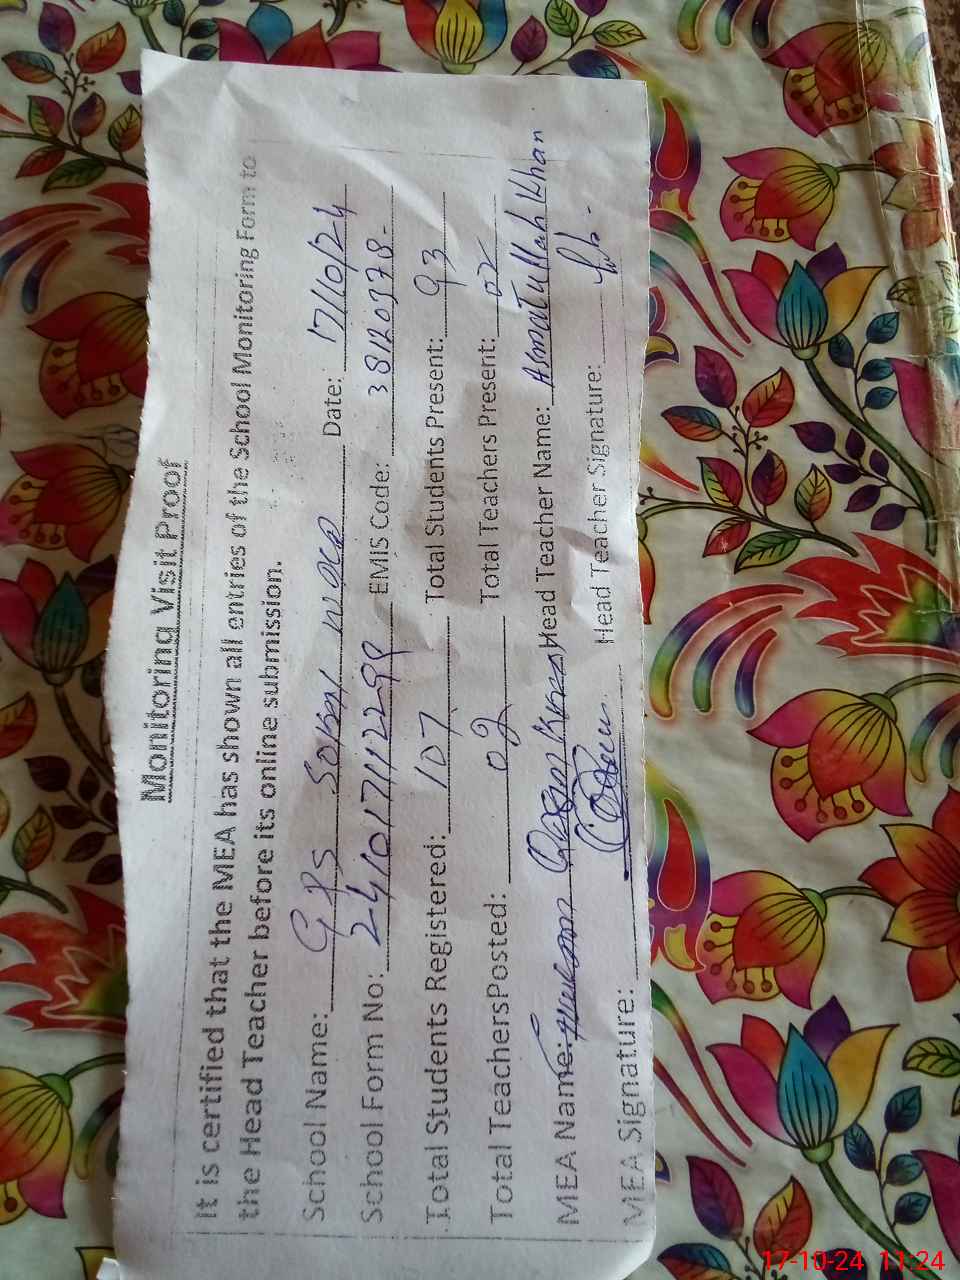 Monitoring Visit Proof
It is certified that the MEA has shown all entries of the School Monitoring Form to
the Head Teacher before its online submission.
School Name: GPS Date: 17/10/24
School Form No: EMIS Code: 38120378-
Total Students Registered: 107 Total Students Present: 93
Total TeachersPosted: 02 Total Teachers Present: 02
MEA Name: Head Teacher Name: Asmatullah Khan
MEA Signature: Head Teacher Signature:
17-10-24 11:24